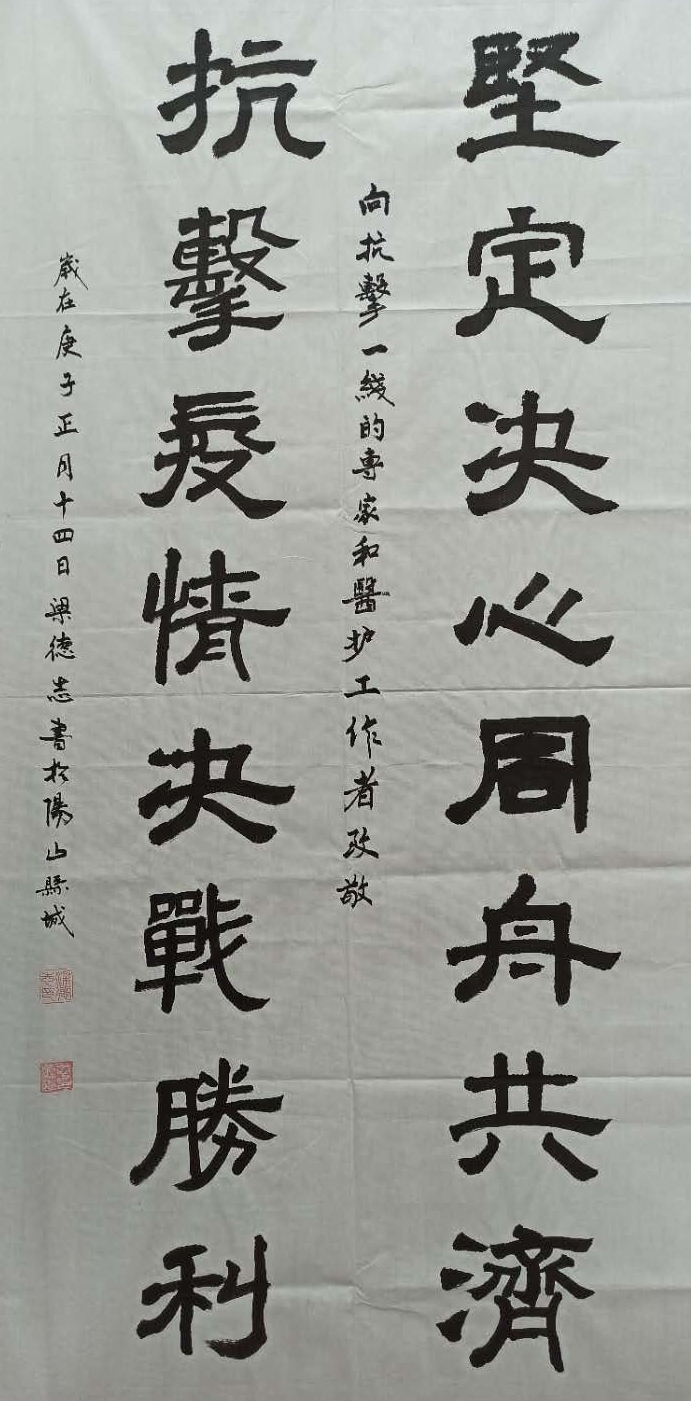 堅定决心同舟共濟
向抗擊一綫的專家和醫护工作者致敬
抗擊疫情决戰勝利
歲在庚子正月十四日梁德志書於陽山縣城